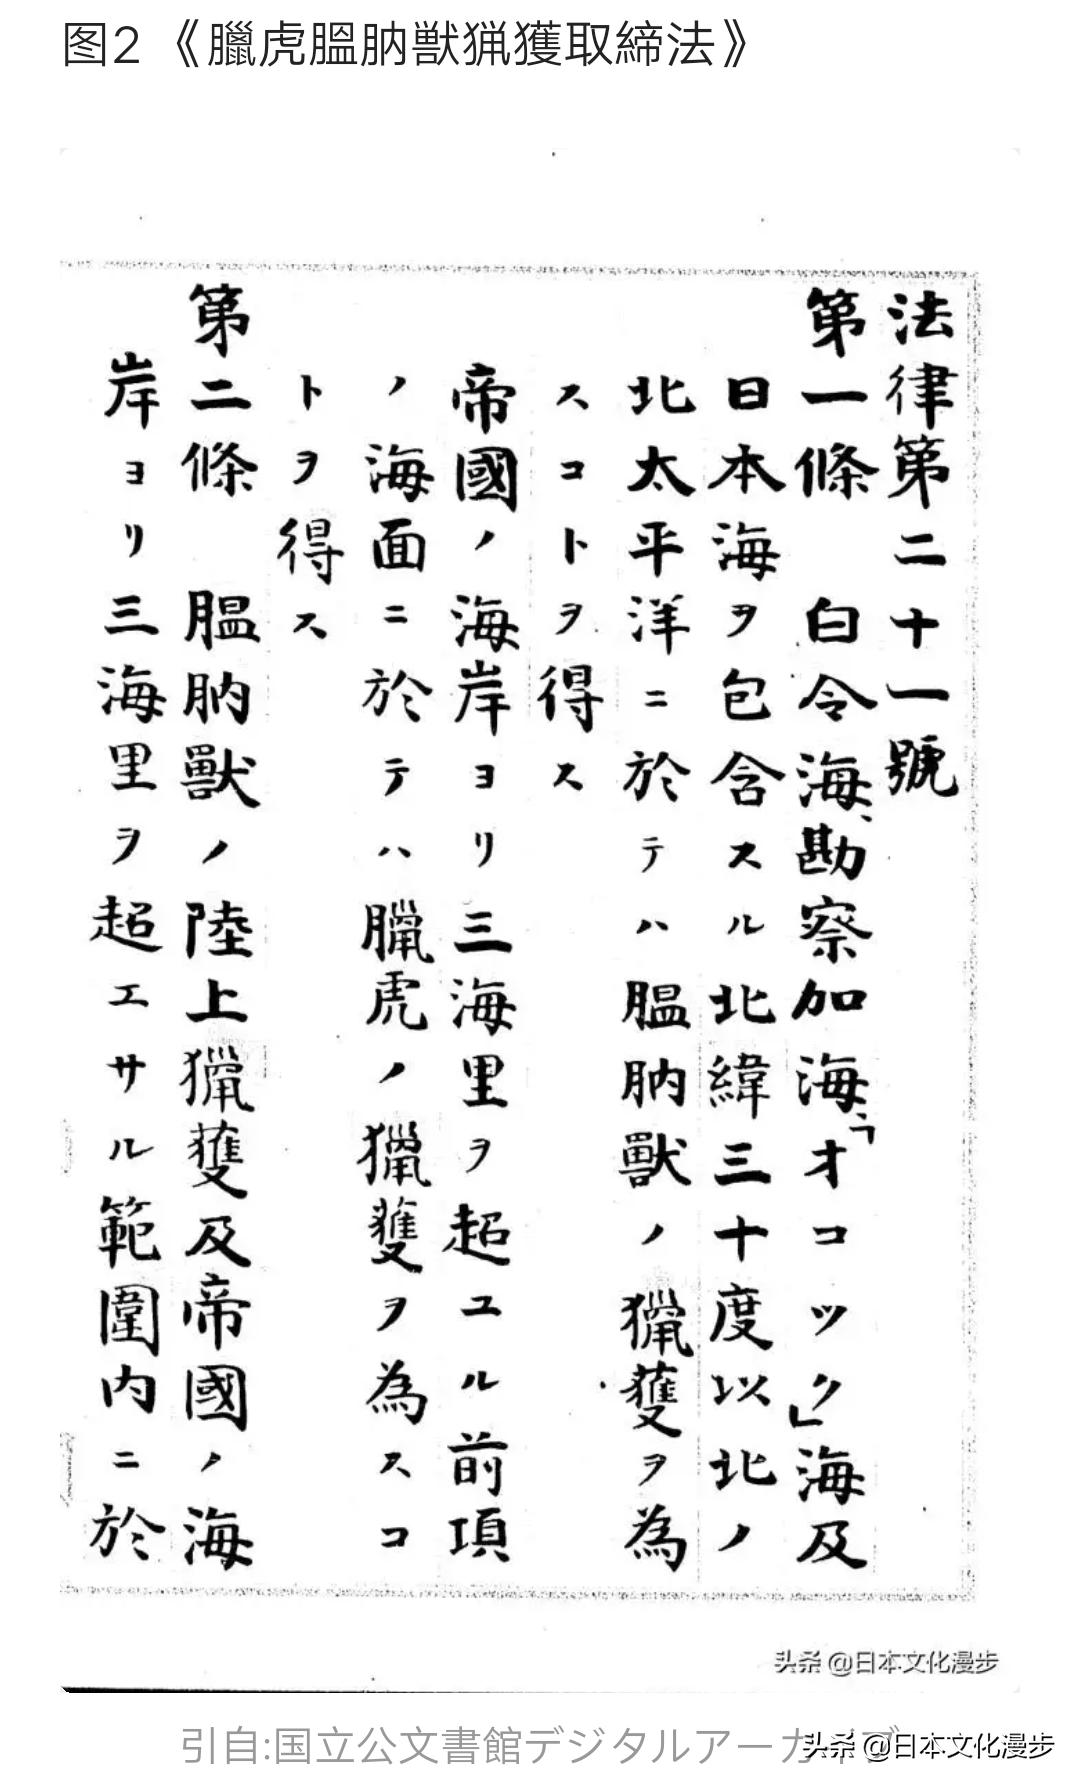 图2《臘虎膃肭獣猟獲取締法》
法律第二十一號
第一條　白令海、勘察加海、「オコツク」海及
日本海ヲ包含スル北緯三十度以北ノ
北太平洋ニ於テハ膃肭獸ノ獵獲ヲ為
スコトヲ得ス
帝國ノ海岸ヨリ三海里ヲ超ユル前項
ノ海面ニ於テハ臘虎ノ獵獲ヲ為スコ
トヲ得ス
第二條　膃肭獸ノ陸上獵獲及帝國ノ海
岸ヨリ三海里ヲ超エサル範圍内ニ於
头条 @日本文化漫步
引自:国立公文書館デジタルアーカイブ
头条 @日本文化漫步